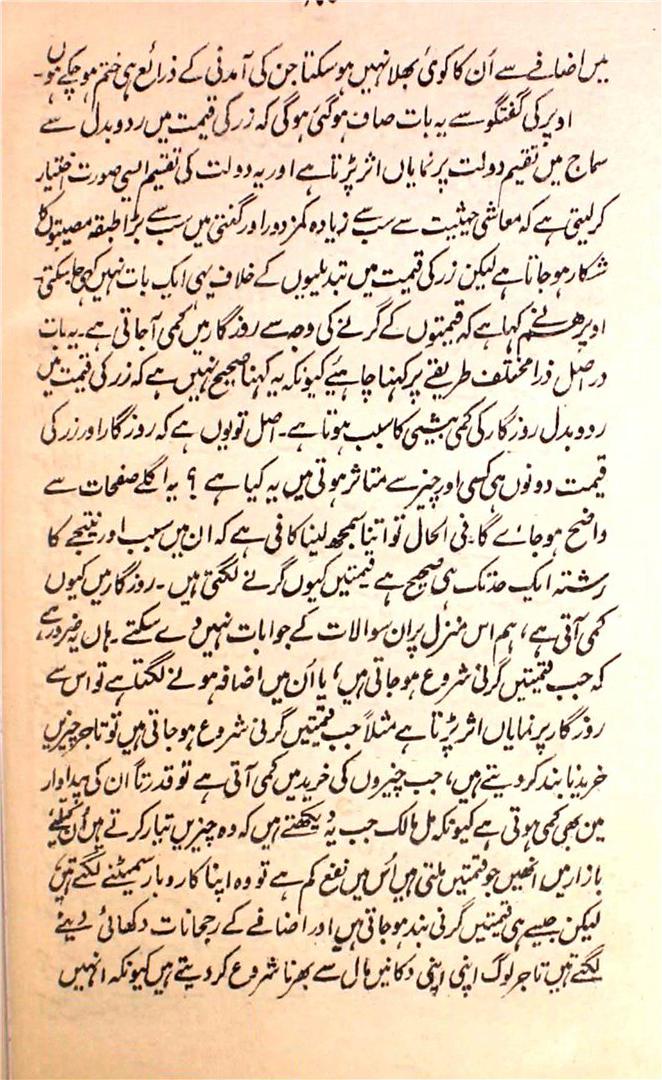 میں اضافے سے اُن کا کوئ بھلا نہیں ہو سکتا جن کی آمدنی کے ذرائع ہی ختم ہو چکے ہوں۔
اوپر کی گفتگو سے یہ بات صاف ہو گئی ہوگی کہ زر کی قیمت میں ردوبدل سے
سماج میں تقیم دولت پر نمایاں اثر پڑتا ہے اور یہ دولت کی تقیم ایسی صورت اختیار
کر لیتی ہے کہ معاشی حیثیت سے سب سے زیادہ کمزدور اور گنتی میں سب سے بڑا طبقہ مصیبتوں کا
شکار ہو جاتا ہے لیکن زر کی قیمت میں تبدیلیوں کے خلاف یہی ایک بات نہیں کہی جا سکتی۔
اوپر ہم نے کہا ہے کہ قیمتوں کے گرنے کی وجہ سے روزگار میں کمی آ جاتی ہے۔ یہ بات
دراصل ذرا مختلف طریقے پر کہنا چاہیئے کیونکہ یہ کہنا صحیح نہیں ہے کہ زر کی قیمت میں
ردوبدل روزگار کی کمی بیشی کا سبب ہوتا ہے۔ اصل تو یوں ہے کہ روزگار اور زر کی
قیمت دونوں ہی کسی اور چیز سے متاثر ہوتی ہیں یہ کیا ہے ؟ یہ اگلے صفحات سے
واضح ہو جائے گا۔ فی الحال تو اتنا سمجھ لینا کافی ہے کہ ان میں سبب اور نتیجے کا
رشتہ ایک حد تک ہی صحیح ہے قیمتیں کیوں گرنے لگتی ہیں۔ روزگار میں کیوں
کمی آتی ہے، ہم اس منزل پر ان سوالات کے جوابات نہیں دے سکتے۔ ہاں یہ ضرور ہے
کہ جب قیمتیں گرنی شروع ہو جاتی ہیں، یا اُن میں اضافہ ہونے لگتا ہے تو اس سے
روزگار پر نمایاں اثر پڑتا ہے مثلاً جب قیمتیں گرنی شروع ہو جاتی ہیں تو تاجر چیزیں
خریدنا بند کر دیتے ہیں، جب چیزوں کی خرید میں کمی آتی ہے تو قدرتاً ان کی پیداوار
میں بھی کمی ہوتی ہے کیونکہ مل مالک جب یہ دیکھتے ہیں کہ وہ چیزیں تیار کرتے ہیں اُن کیلئے
بازار میں انھیں جو قیمتیں ملتی ہیں اُس میں نفع کم ہے تو وہ اپنا کاروبار سمیٹنے لگتے ہیں
لیکن جیسے ہی قیمتیں گرنی بند ہو جاتی ہیں اور اضافے کے رجحانات دکھائی دینے
لگتے ہیں تاجر لوگ اپنی اپنی دکانیں مال سے بھرنا شروع کر دیتے ہیں کیونکہ انہیں